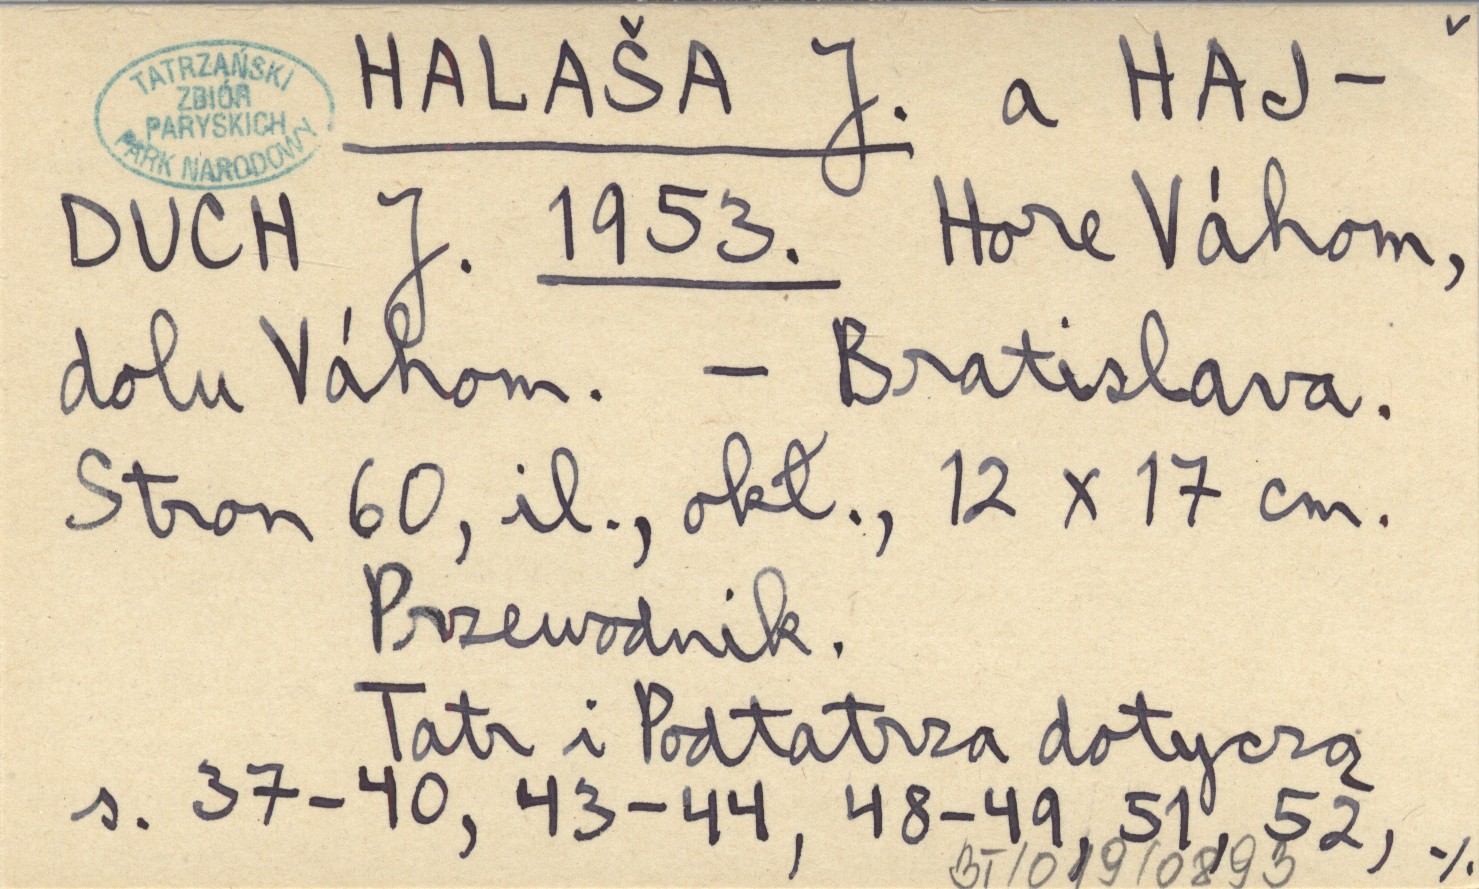 TATRZAŃSKI
ZBIÓR
PARYSKICH
PARK NARODOWY
HALAŠA J. a HAJ-
DUCH J. 1953. Hore Váhom,
dolu Váhom. - Bratislava.
Stron 60, il., okł., 12 x 17 cm.
Przewodnik.
Tatr i Podtatrza dotyczą
s. 37-40, 43-44, 48-49, 51, 52, ./.
BT/019/0893